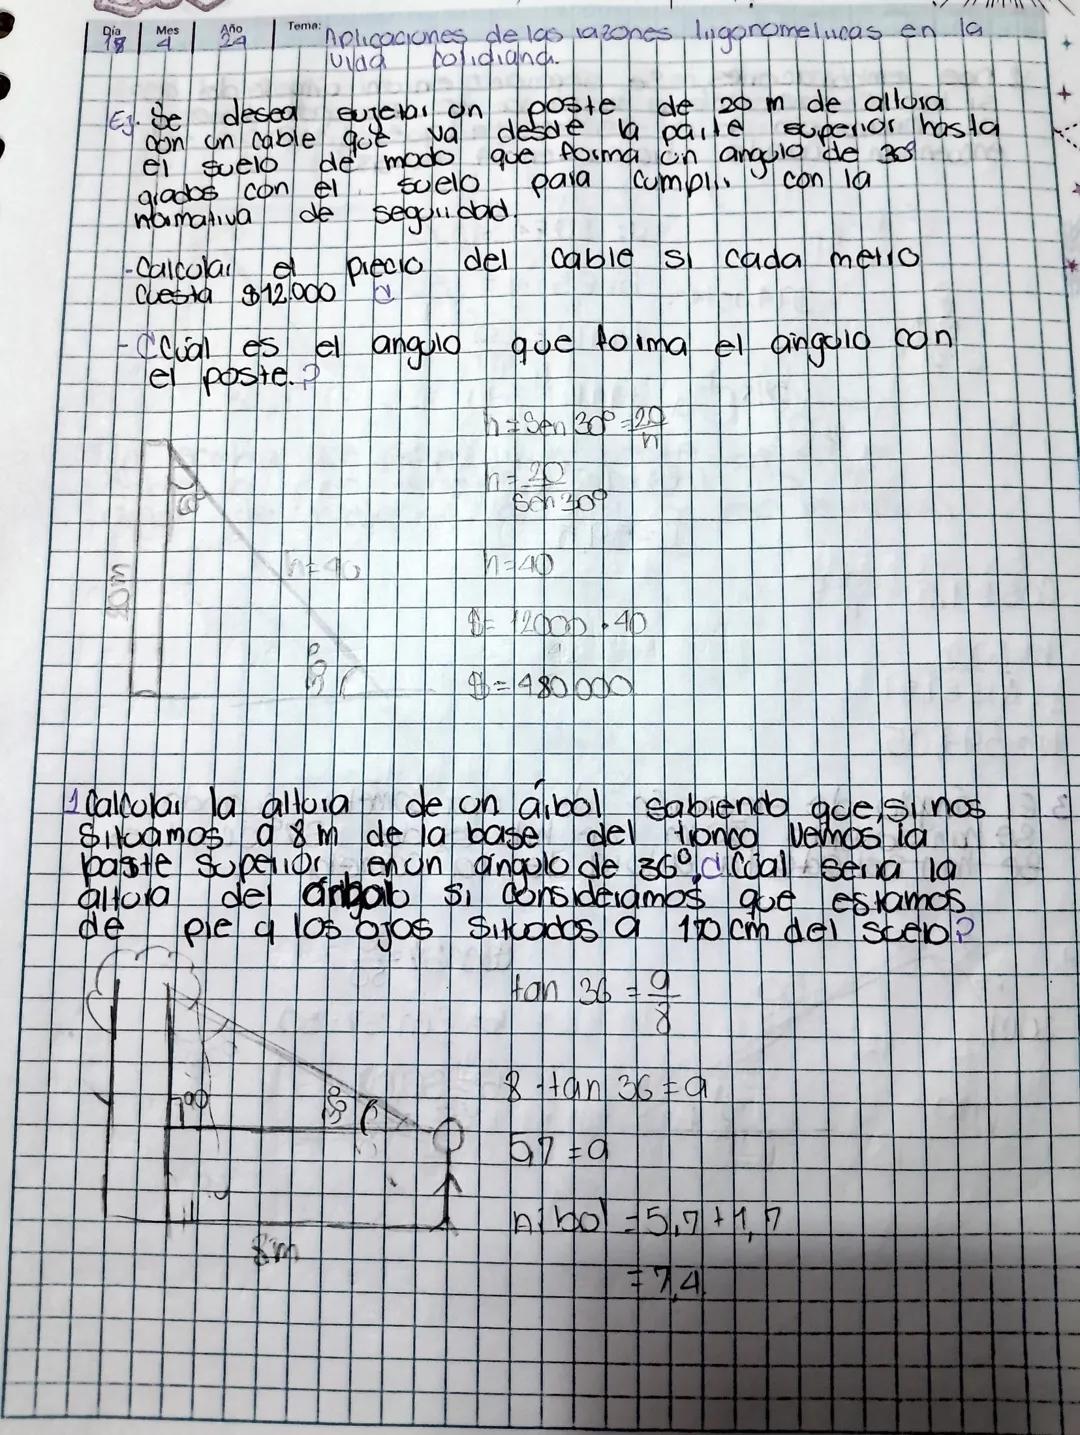 Día Mes Año Tema: Aplicaciones de las razones trigonometricas en la
18 4 24 vida cotidiana.
Ej. Se desea sujetar un poste de 20 m de altura
con un cable que va desde la parte superior hasta
el suelo de modo que forma un angulo de 30°
grados con el suelo para cumplir con la
normativa de seguridad.
-Calcular el precio del cable si cada metro
cuesta $12.000
- ¿Cuál es el angulo que forma el angulo con
el poste.?
h = Sen 30° = 20/h
h = 20/Sen 30°
60°
h=40
20m
h=40
$= 12000 . 40
30°
$= 480000
1 Calcular la altura de un árbol sabiendo que, si nos
situamos a 8 m de la base del tronco vemos la
parte superior en un ángulo de 36°, ¿Cúal seria la
altura del árbol si consideramos que estamos
de pie q los ojos situados a 170 cm del suelo?
tan 36 = a/8
8 . tan 36 = a
90
36°
5,7 = a
árbol = 5,7 + 1,7
8m
= 7,4